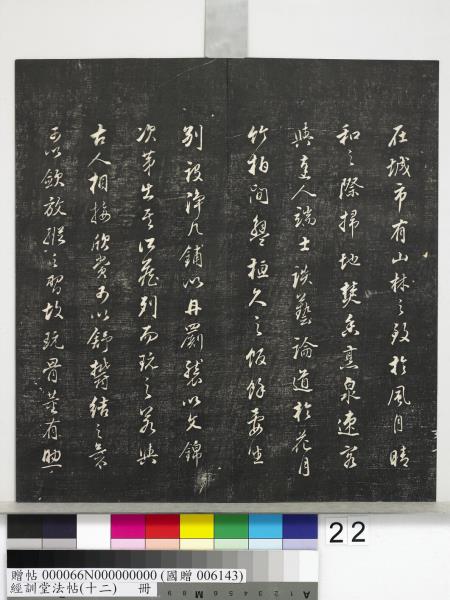 在城市有山林之致於風月晴
和之際掃地焚香烹泉速客
與達人端士談藝論道於花月
竹柏間盤桓久之飯餘晏坐
別設淨几鋪以丹罽襲以文錦
次第出其所藏列而玩之若與
古人相接欣賞可以舒鬱結之氣
可以斂放縱之習故玩骨董有助
22
贈帖 000066N000000000 (國贈 006143)
經訓堂法帖(十二) 冊